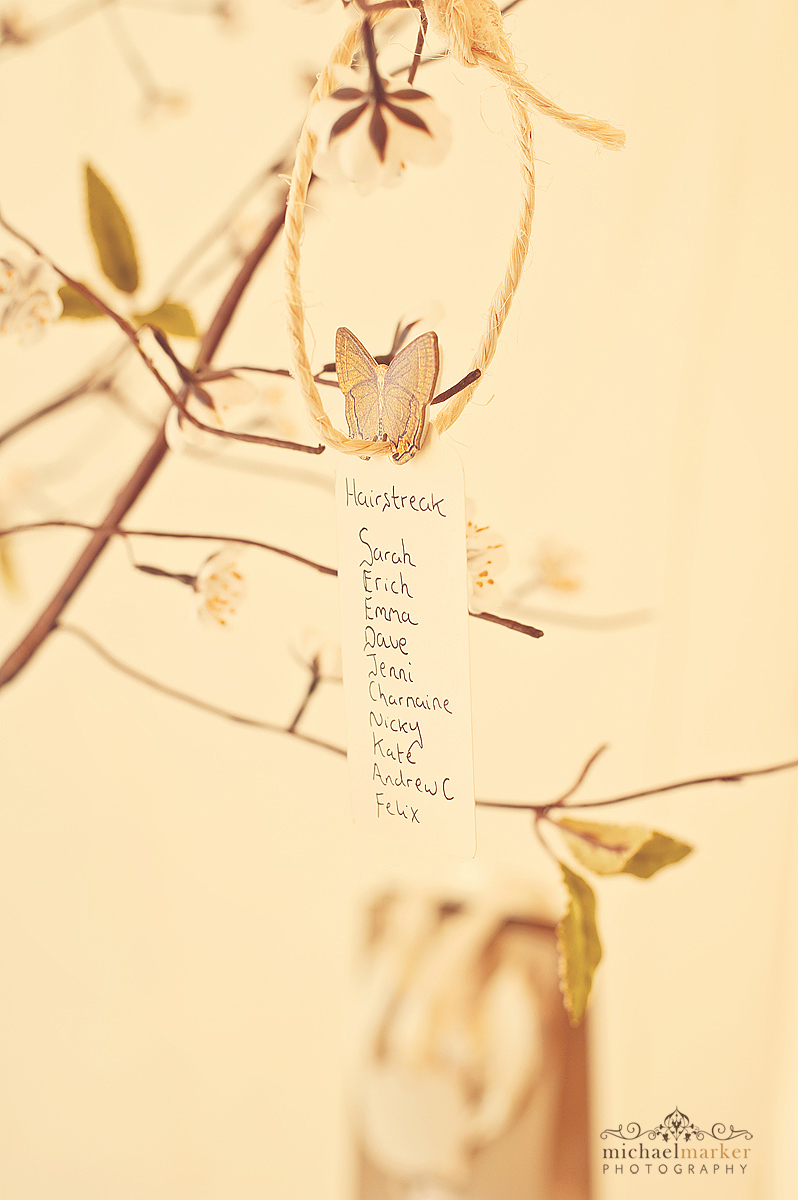 Hairstreak
Sarah
Erich
Emma
Dave
Jenni
Charmaine
Nicky
Kate
Andrew C
Felix
michaelmarker
PHOTOGRAPHY